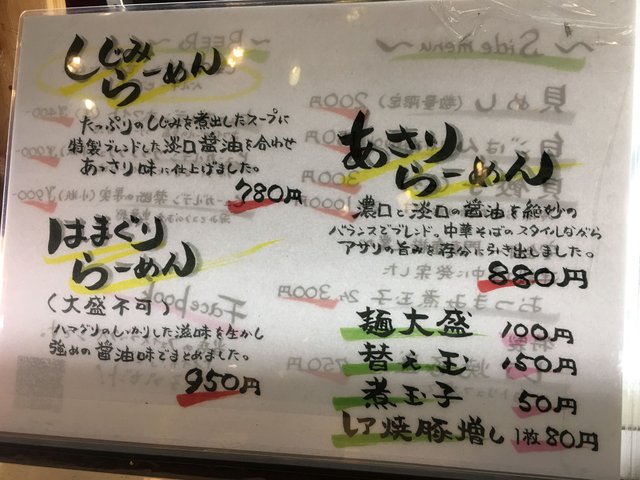 しじみ
らーめん
たっぷりのしじみを煮出したスープに
特製ブレンドした淡口醤油を合わせ
あっさり味に仕上げました。
780円
はまぐり
らーめん
(大盛不可)
ハマグリのしっかりした滋味を生かし
強めの醤油味でまとめました。
950円
あさり
らーめん
濃口と淡口の醤油を絶妙の
バランスでブレンド。中華そばのスタイルながら
アサリの旨みを存分に引き出しました。
880円
麺大盛 100円
替え玉 150円
煮玉子 50円
レア焼豚増し 1枚80円
~Side menu~
~BEER~
貝めし(数量限定)
200円
Facebook